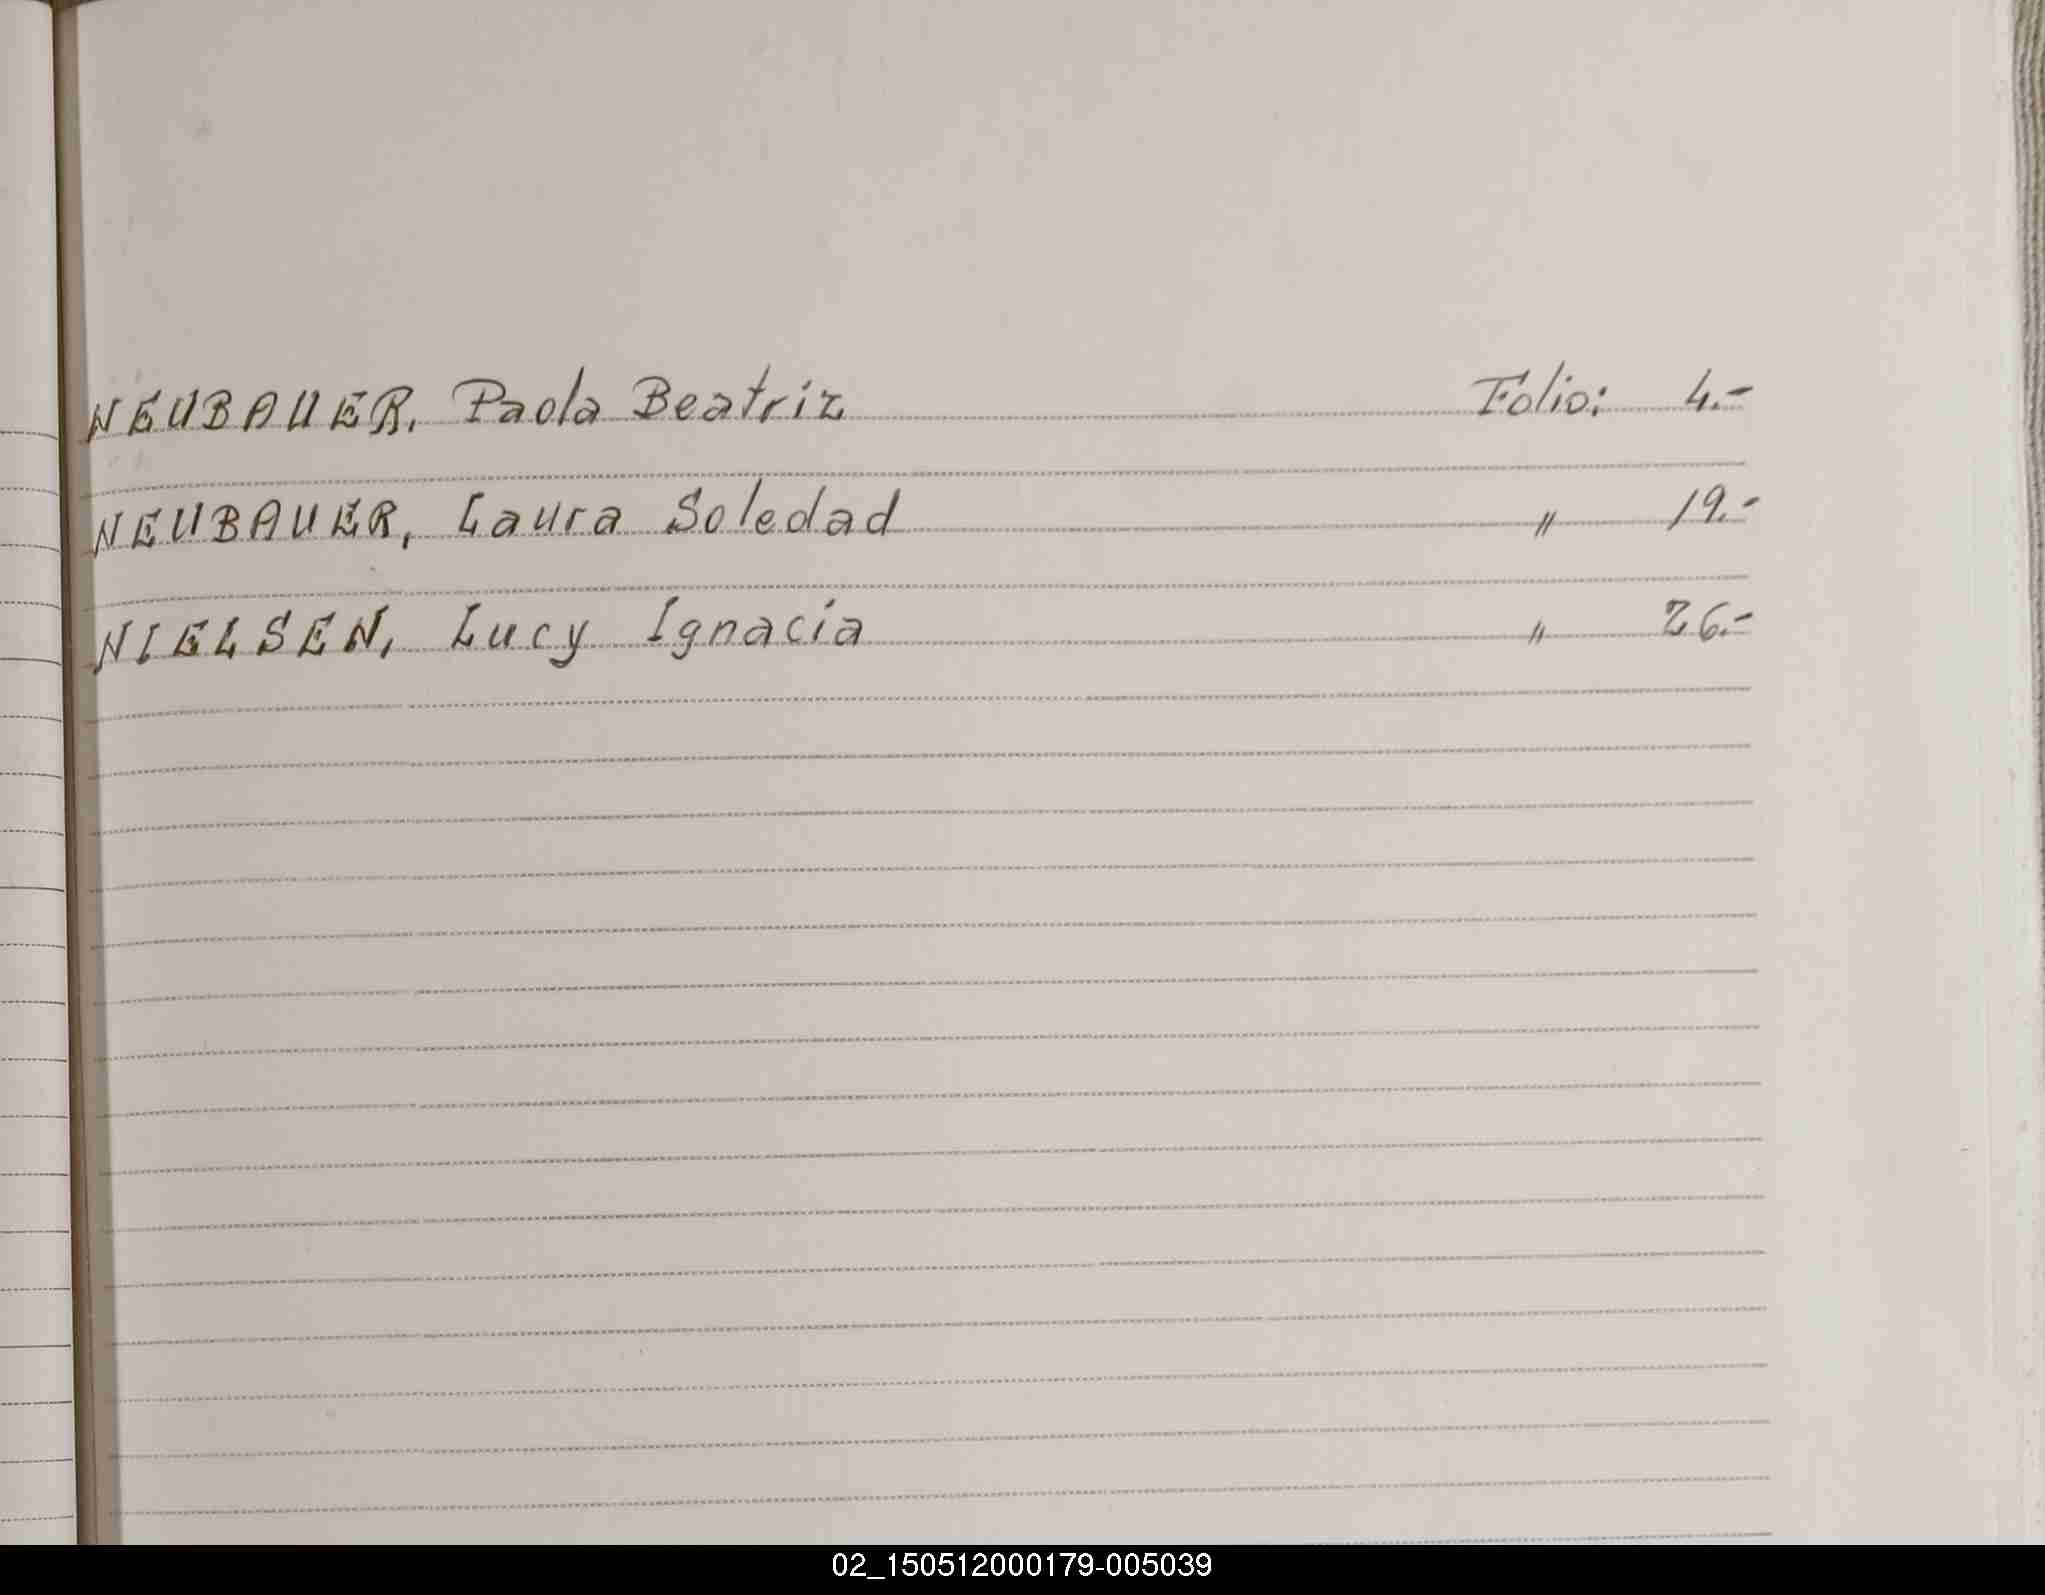 NEUBAUER, Paola Beatriz Folio: 4.-
NEUBAUER, Laura Soledad " 19.-
NIELSEN, Lucy Ignacia " 26.-
02_150512000179-005039